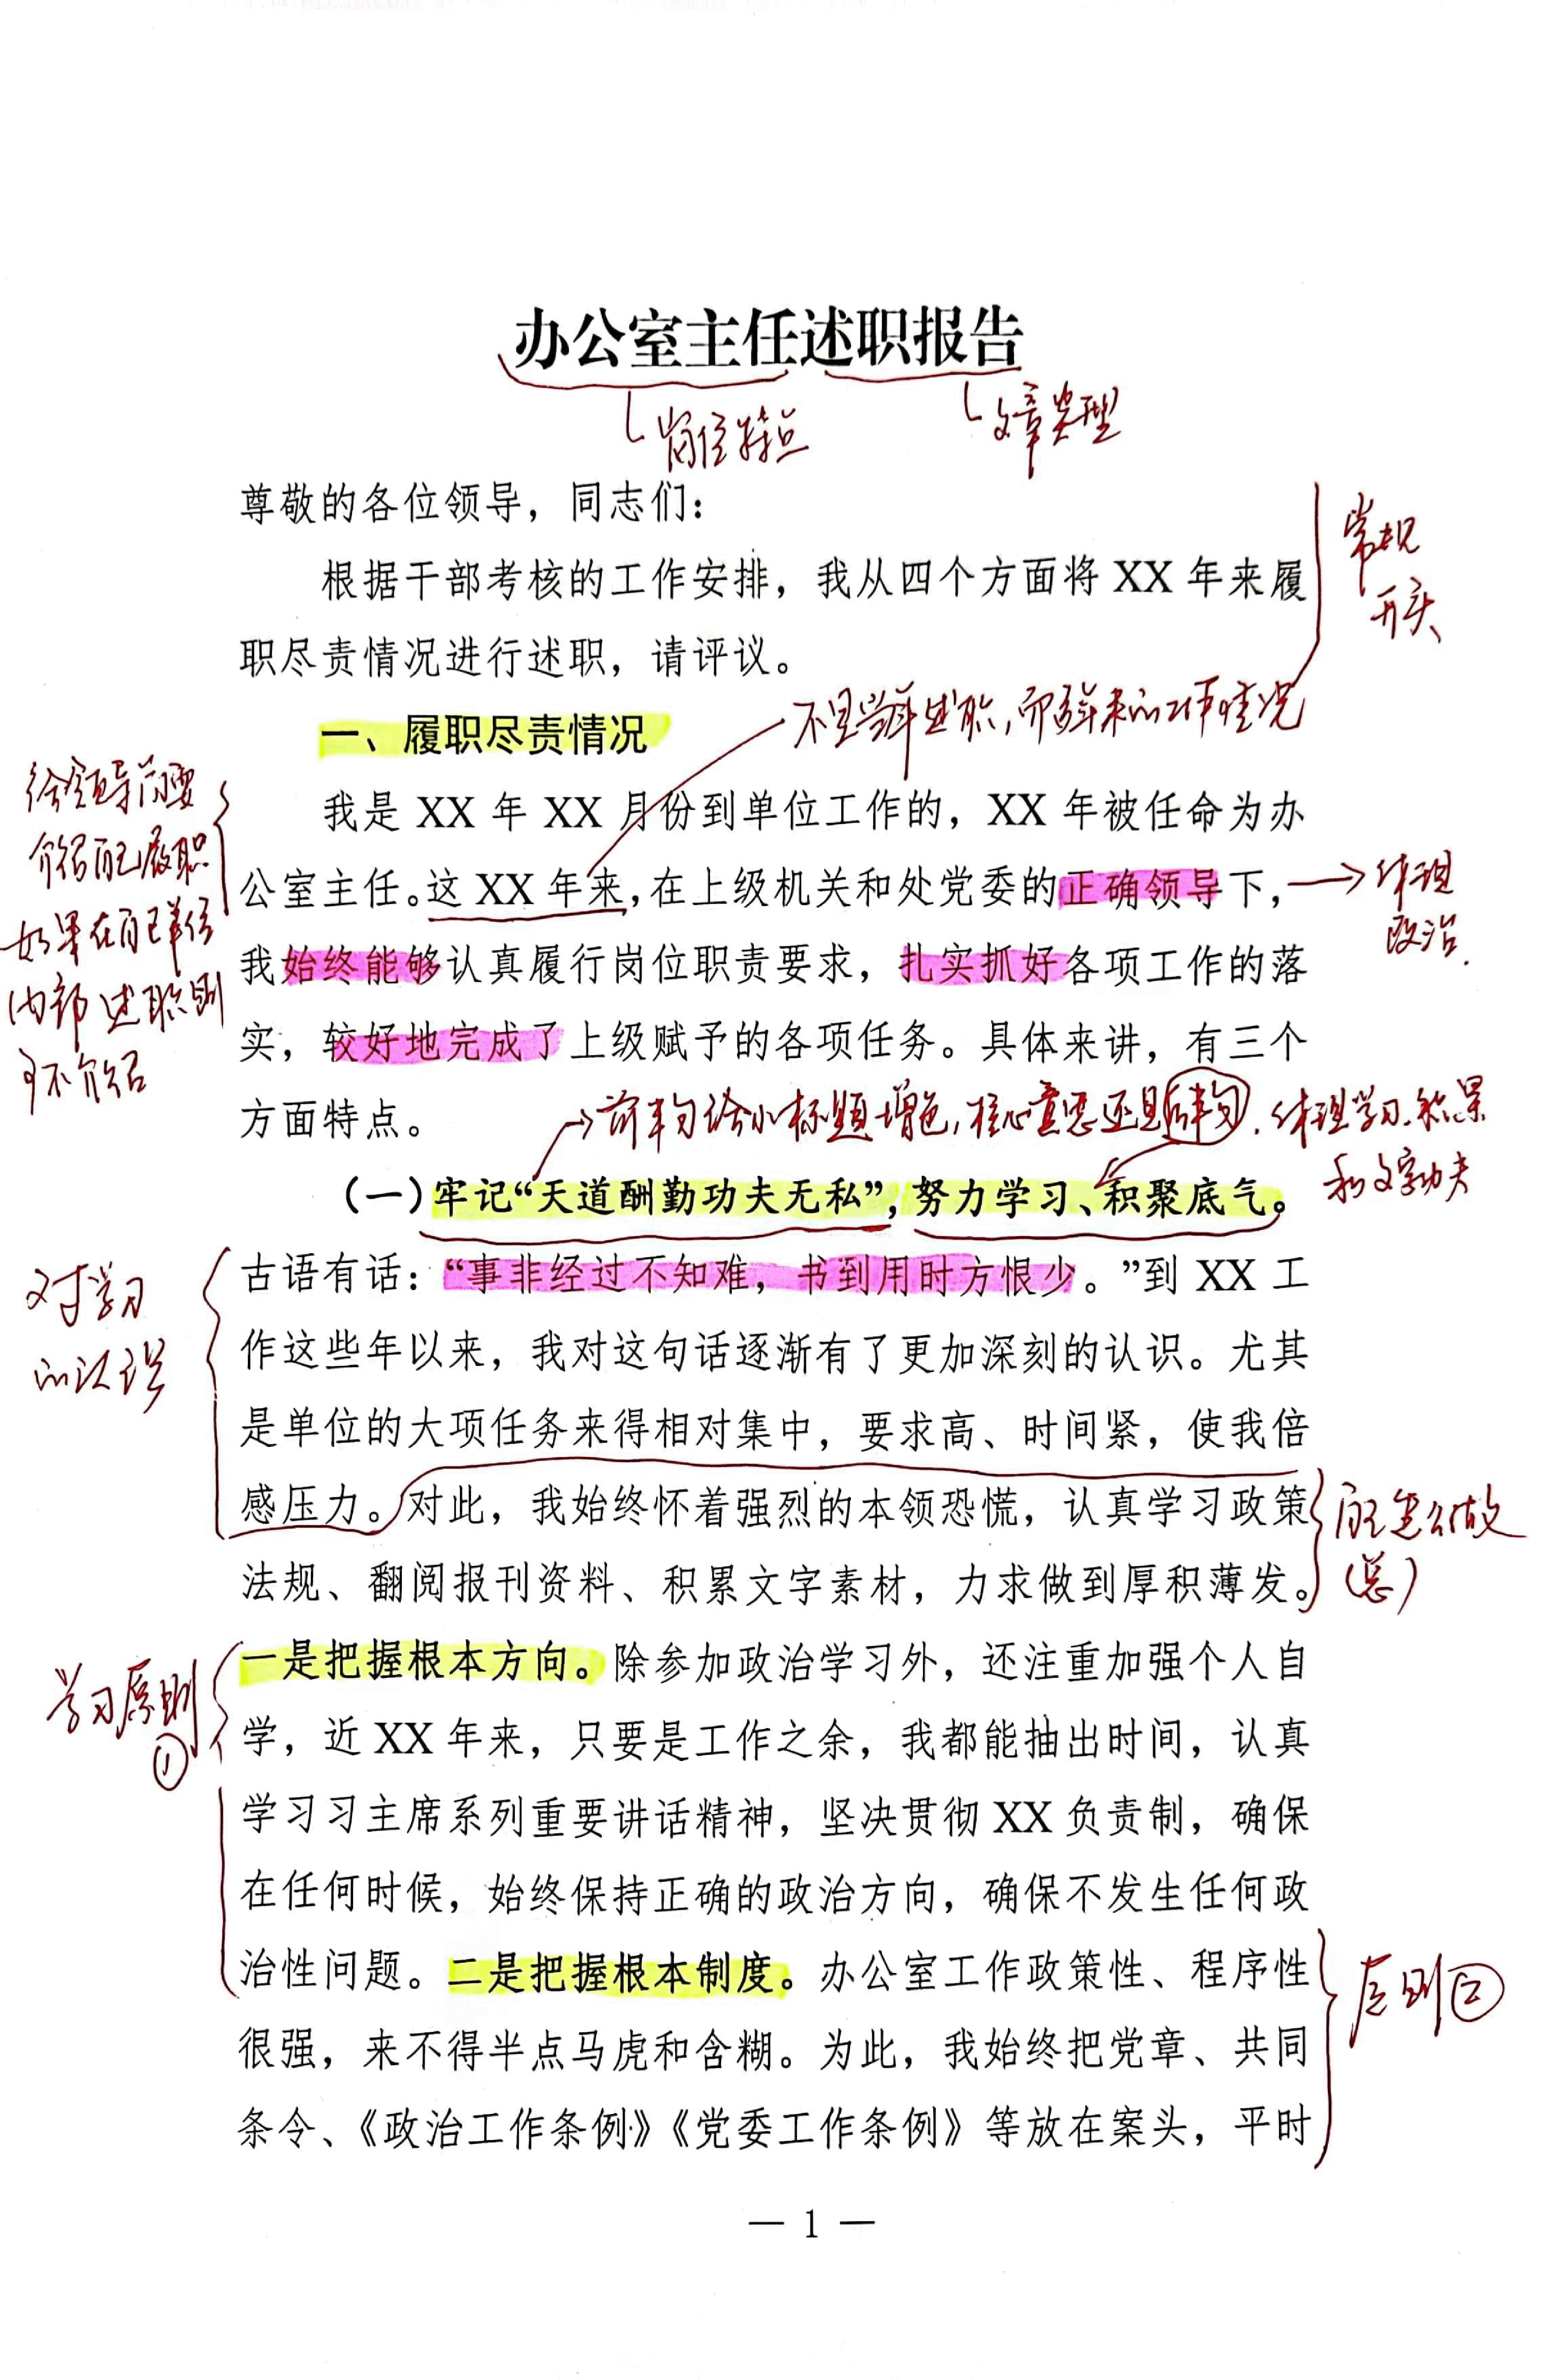 办公室主任述职报告
岗位特点
文章类型
尊敬的各位领导，同志们：
常规
开头
根据干部考核的工作安排，我从四个方面将 XX 年来履
职尽责情况进行述职，请评议。
不是当年述职，而是多年来的工作情况
一、履职尽责情况
给领导简要
介绍自己履职
如果在自己单位
内部述职则
可不介绍
我是 XX 年 XX 月份到单位工作的，XX 年被任命为办
公室主任。这 XX 年来，在上级机关和处党委的正确领导下，
体现
政治.
我始终能够认真履行岗位职责要求，扎实抓好各项工作的落
实，较好地完成了上级赋予的各项任务。具体来讲，有三个
方面特点。
前半句给小标题增色，核心意思还是后半句. 体现学习.积累
和文字功夫
（一）牢记“天道酬勤功夫无私”，努力学习、积聚底气。
对学习
的认识
古语有话：“事非经过不知难，书到用时方恨少。”到 XX 工
作这些年以来，我对这句话逐渐有了更加深刻的认识。尤其
是单位的大项任务来得相对集中，要求高、时间紧，使我倍
感压力。对此，我始终怀着强烈的本领恐慌，认真学习政策
法规、翻阅报刊资料、积累文字素材，力求做到厚积薄发。
自己怎么做
（总）
学习原则
①
一是把握根本方向。除参加政治学习外，还注重加强个人自
学，近 XX 年来，只要是工作之余，我都能抽出时间，认真
学习习主席系列重要讲话精神，坚决贯彻 XX 负责制，确保
在任何时候，始终保持正确的政治方向，确保不发生任何政
治性问题。二是把握根本制度。办公室工作政策性、程序性
原则②
很强，来不得半点马虎和含糊。为此，我始终把党章、共同
条令、《政治工作条例》《党委工作条例》等放在案头，平时
— 1 —